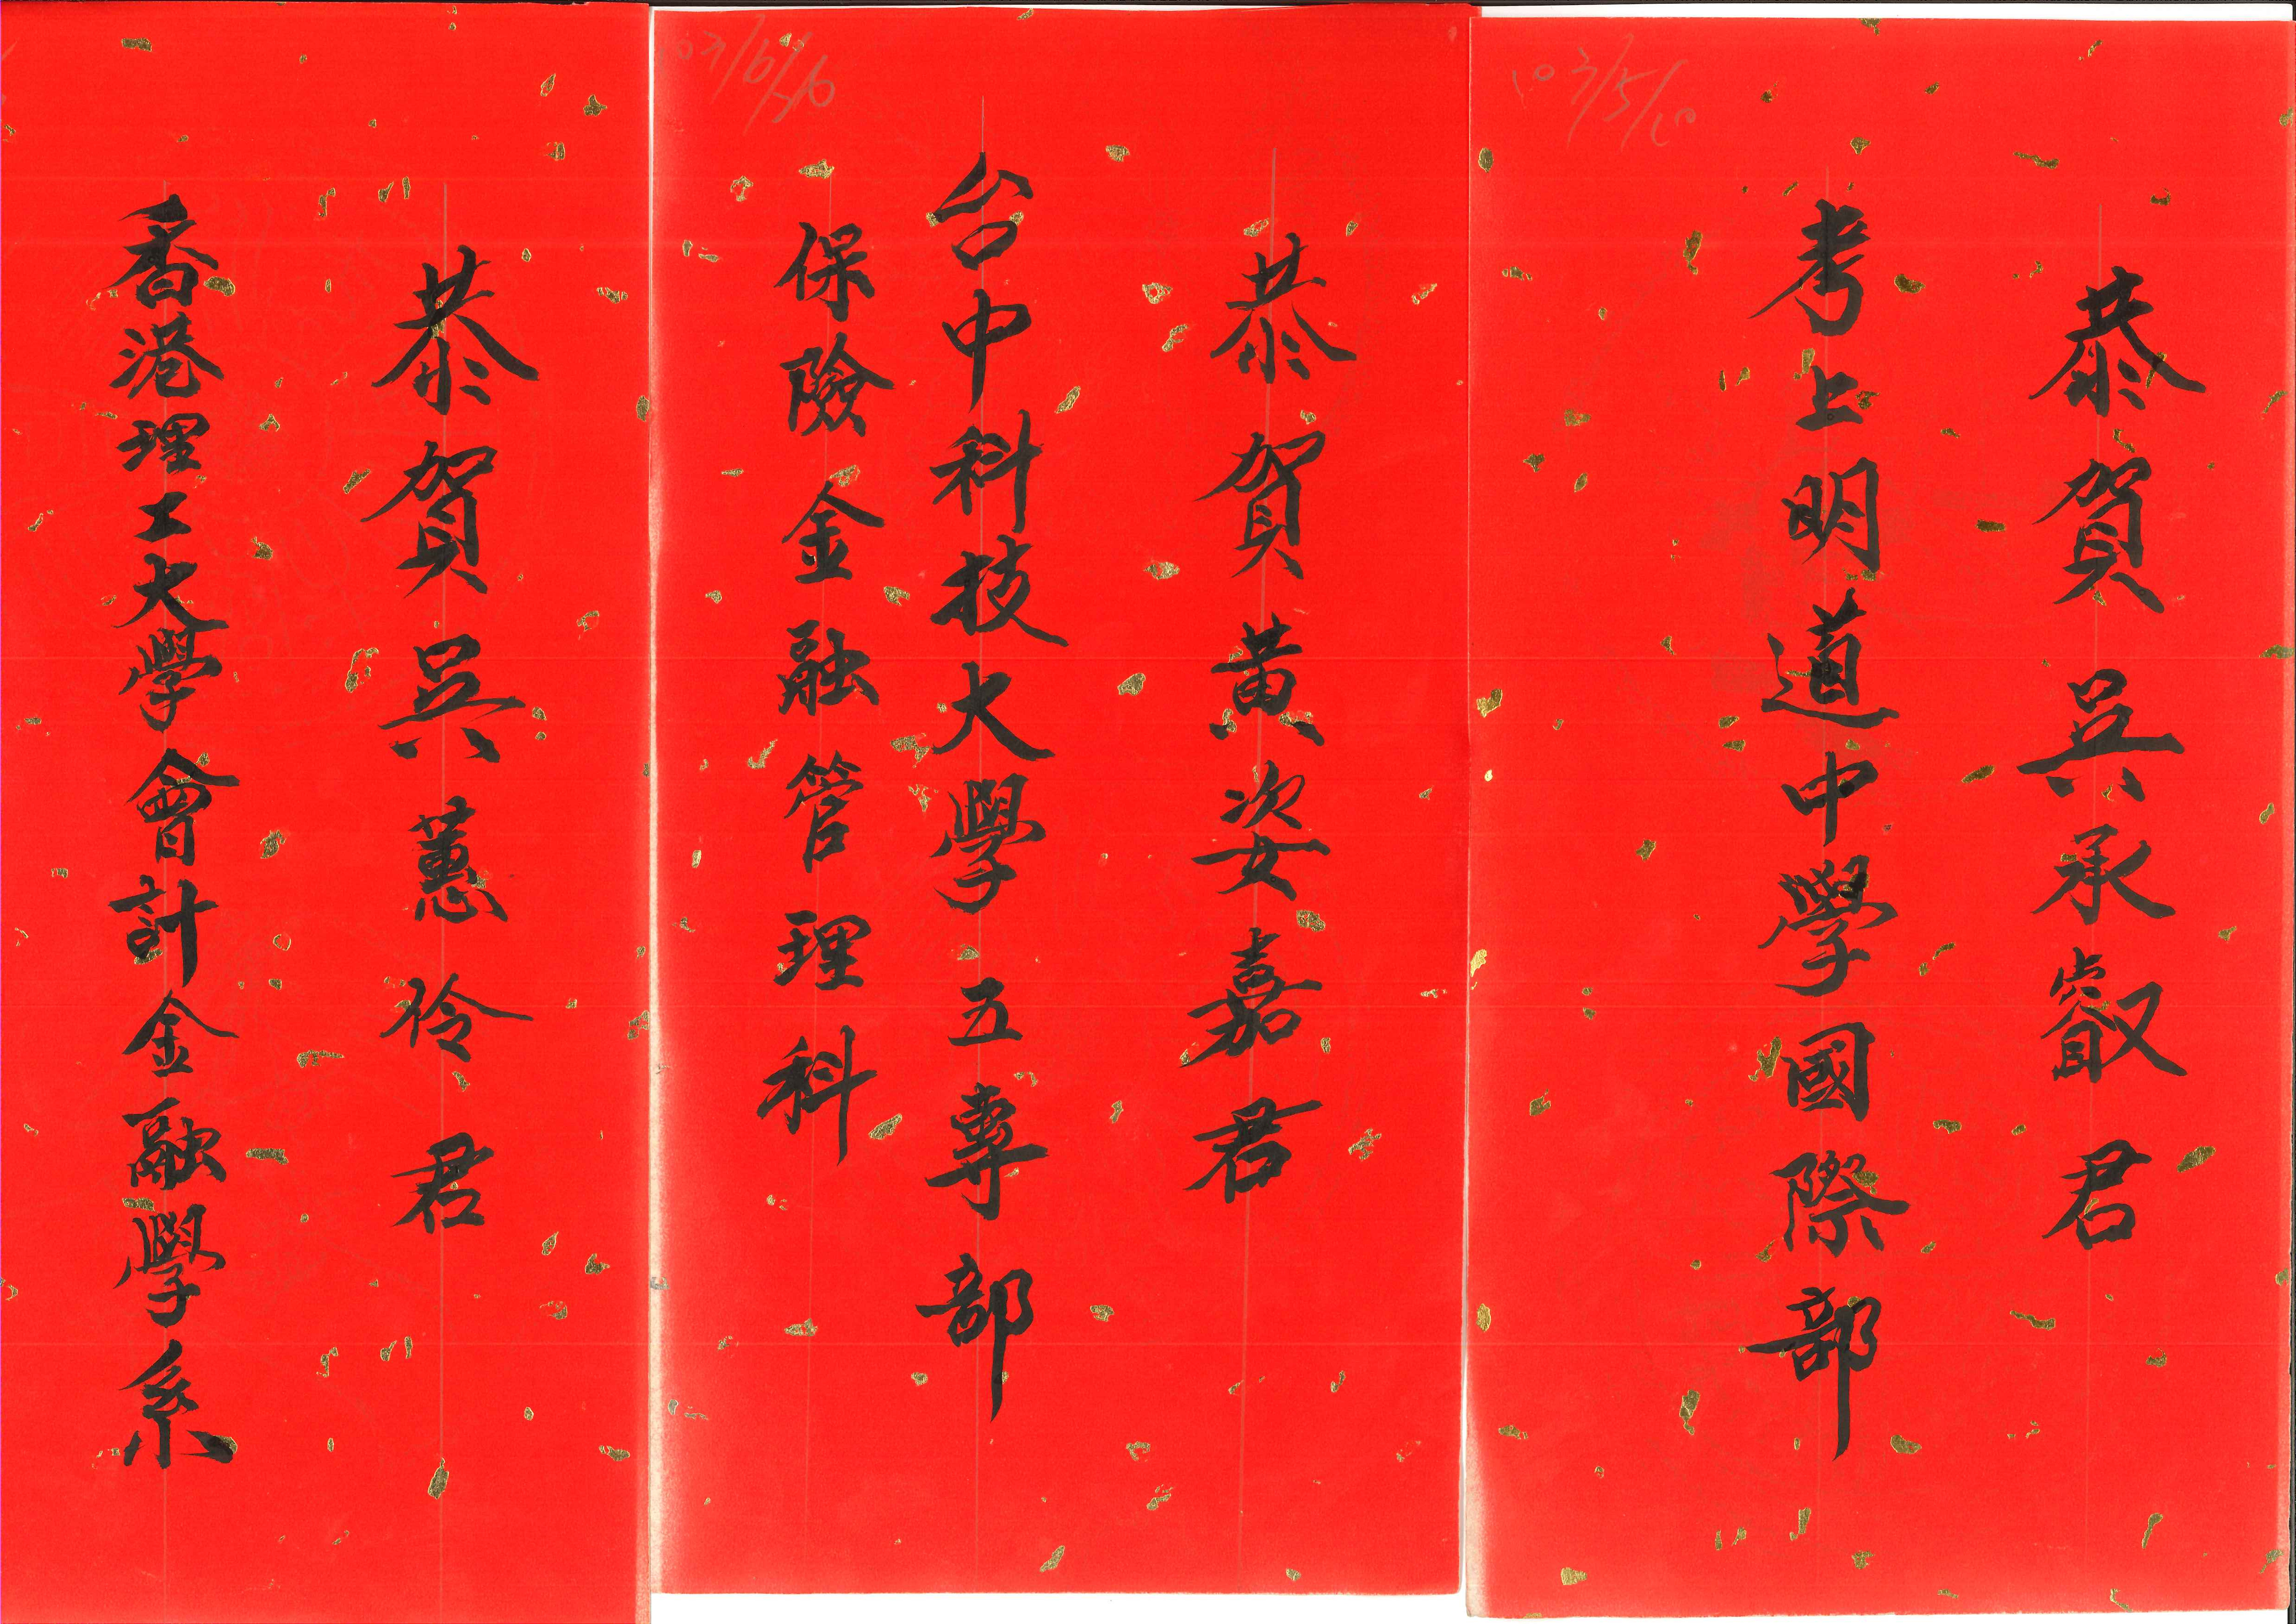 103/5/10
恭賀吳承叡君
考上明道中學國際部
恭賀黃姿嘉君
台中科技大學五專部
保險金融管理科
恭賀吳蕙伶君
香港理工大學會計金融學系